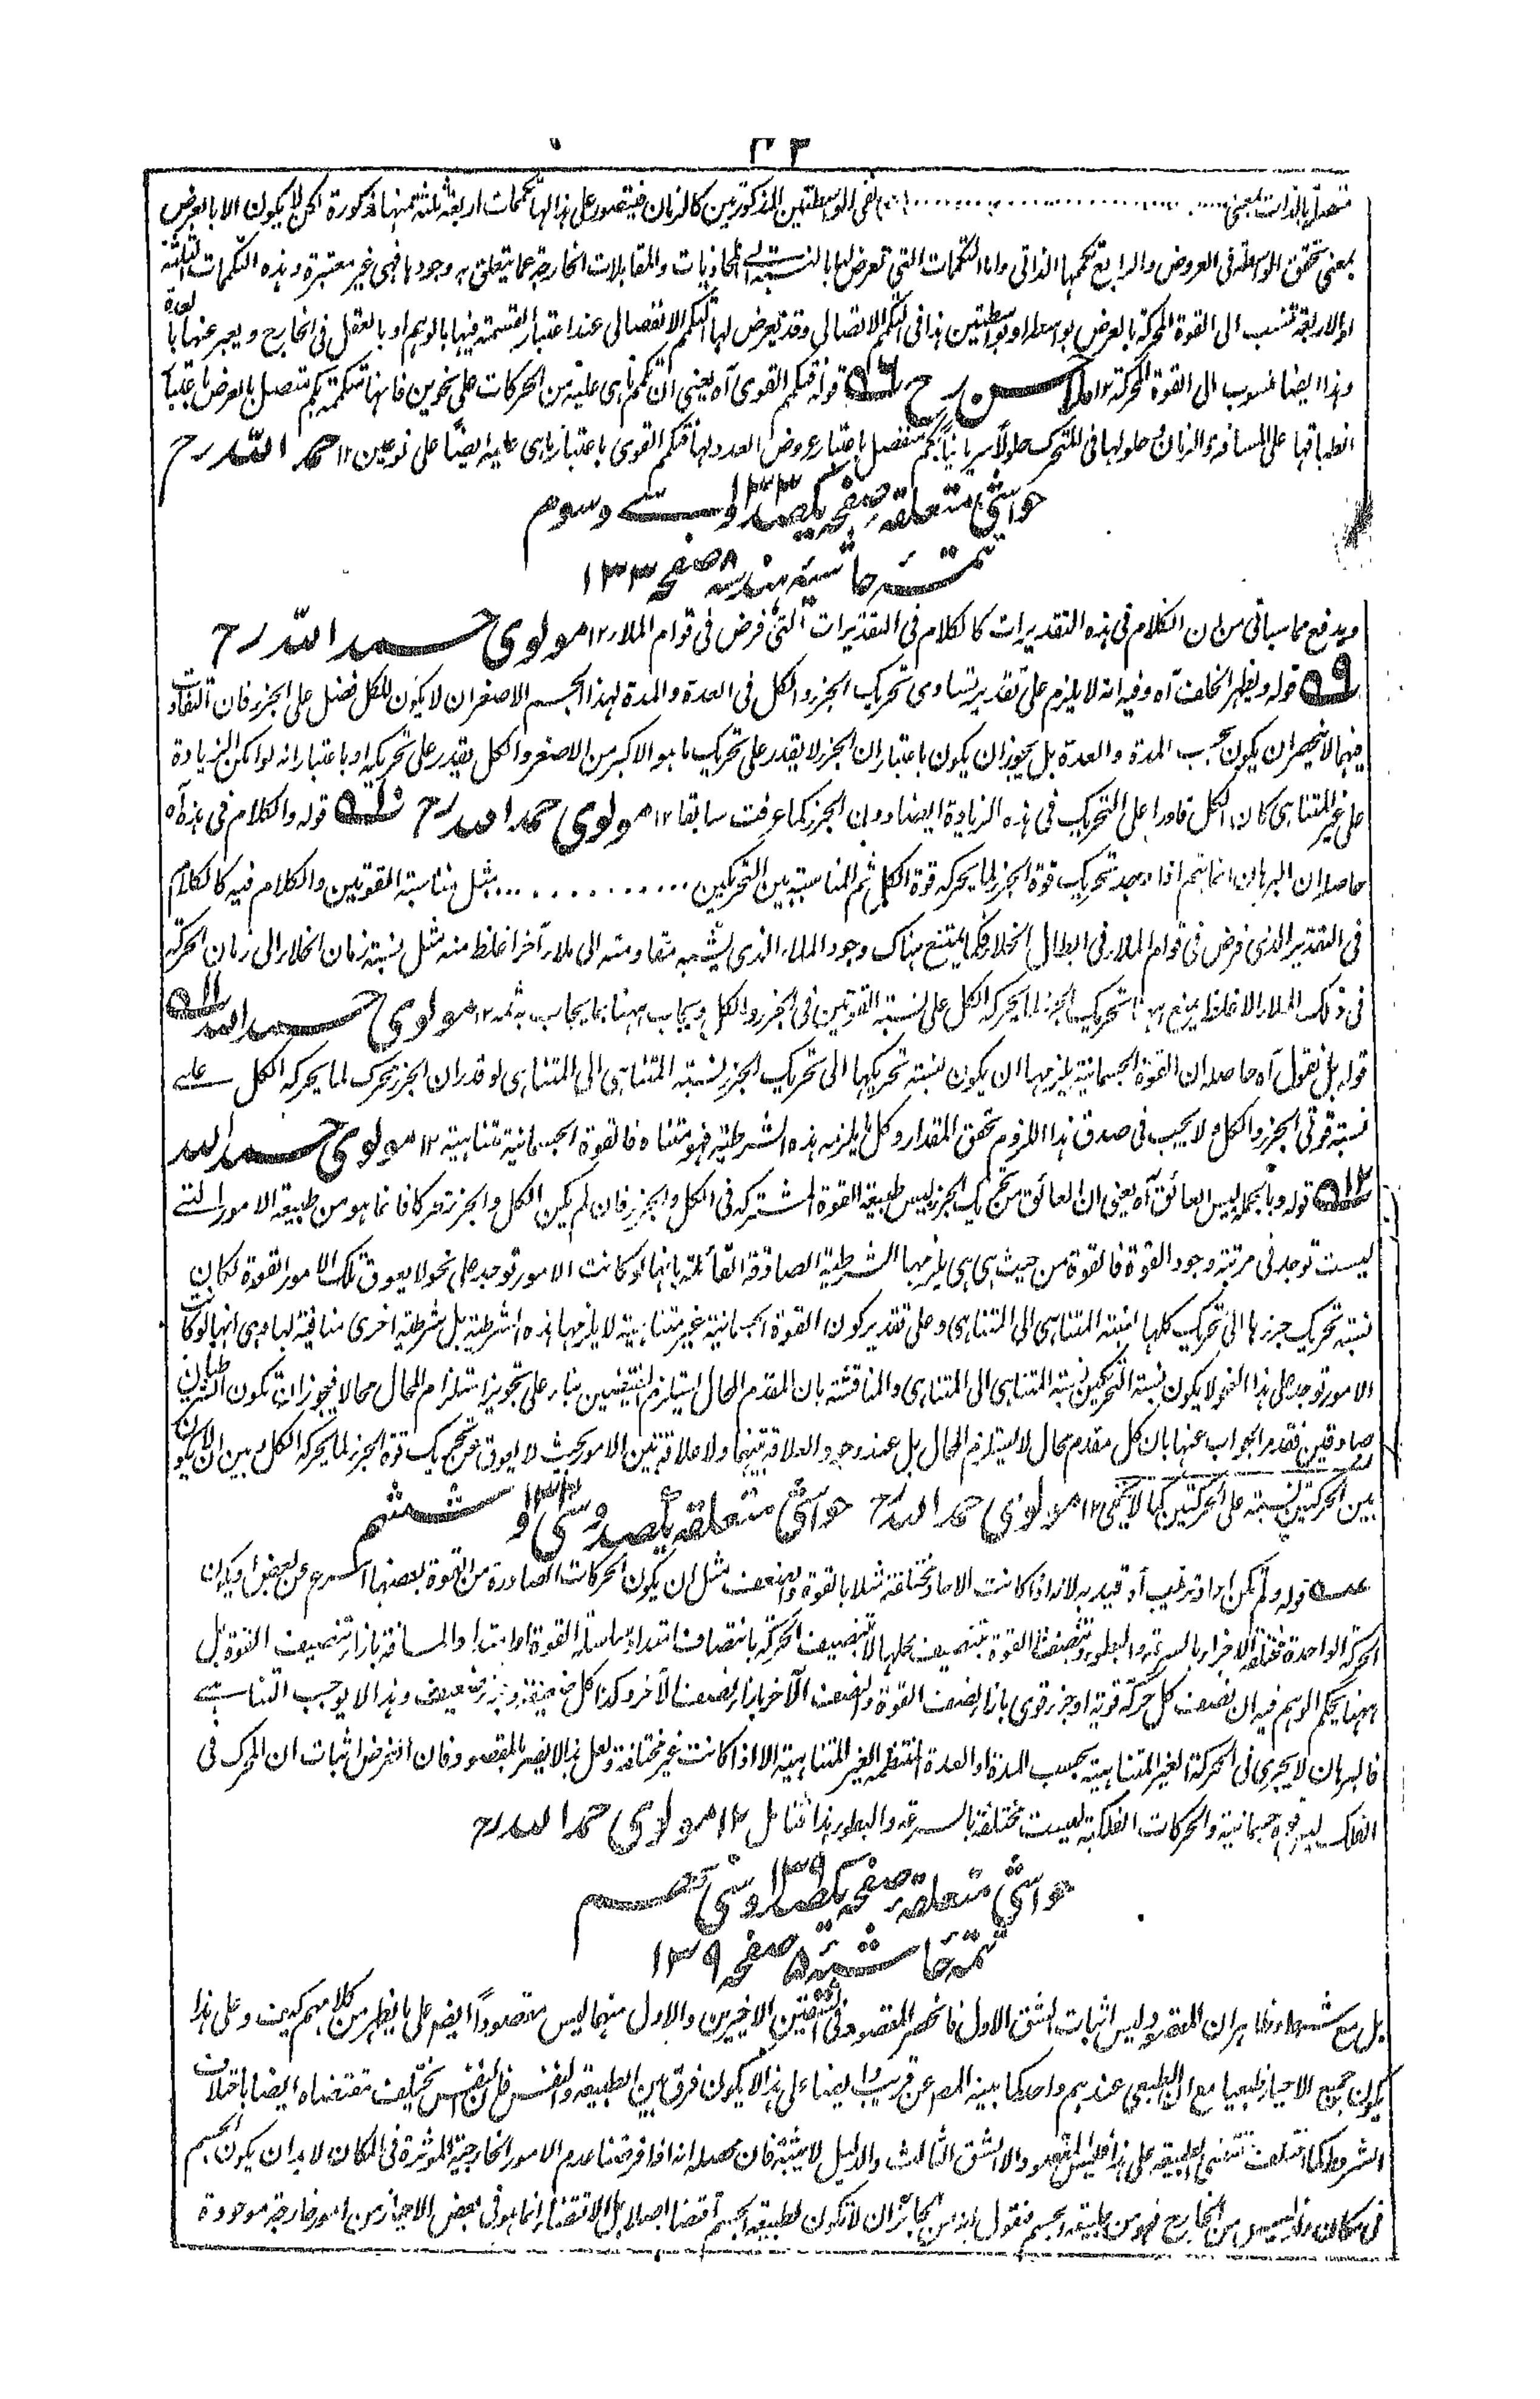 ٣٢
متصلة بالذات بمعنى ........ نفى الواسطتين المذكورتين كالزمان فيتصور على هذا لها تكممات اربعة ثلثة منها مذكورة لكن لا يكون الا بالعرض
بمعنى تحقق الواسطة فى العروض والرابع تكممها الذاتى واما التكممات التى تعرض لها بالنسبة الى المحاذيات والمقابلات الخارجة عما يتعلق به وجودها فهى غير معتبرة وهذه التكممات الثلثة
او الاربعة تنسب الى القوة المحركة بالعرض بواسطة او بواسطتين هذا فى التكمم الاتصالى وقد يعرض لها التكمم الانفصالى عند اعتبار القسمة فيها بالوهم او بالعقل فى الخارج ويعبر عنها بالعدة
وهذا ايضا منسوب الى القوة المحركة ١٢ ملا حسن رح قوله فتكمم القوى آه يعنى ان تكمم ما هى علية من الحركات على نحوين فانها متكممة بكم متصل بالعرض باعتبار
انطباقها على المسافة والزمان وحلولها فى المتحرك حلولا سريانيا بكم منفصل باعتبار عروض العدد لها فتكمم القوى باعتبار ما هى علية ايضا على نوعين ١٢ حمد الله رح
حواشى متعلقه صفحه يكصد و سى وسوم ١٣٣
تتمه حاشيه هندسه ٨ صفحه ١٣٣
ويدفع مما سياتى من ان الكلام فى هذه التقديرات كالكلام فى التقديرات التى فرض فى قوام الملاء ١٢ مولوى حمد الله رح
٩ قوله ويظهر الخلف آه وفيه انه لا يلزم على تقدير تساوى تحريك الجزء والكل فى العدة والمدة لهذا الجسم الاصغر ان لا يكون للكل فضل على الجزء فان التفاوت
فيهما لا ينحصر ان يكون بحسب المدة والعدة بل يجوز ان يكون باعتبار ان الجزء لا يقدر على تحريك ما هو الاكبر من الاصغر والكل يقدر على تحريكه او باعتبار انه لو امكن الزيادة
على غير المتناهى كان الكل قادرا على التحريك فى هذه الزيادة ايضا دون الجزء كما عرفت سابقا ١٢ مولوى حمد الله رح قوله والكلام فى هذه آه
حاصله ان البرهان انما يتم اذا وجد تحريك قوة الجزء لما يحركه قوة الكل ثم المناسبة بين التحريكين ........ بمثل مناسبة القوتين والكلام فيه كالكلام
فى التقدير الذى فرض فى قوام الملاء فى ابطال الخلاء فكما يمتنع هناك وجود الملاء الذى نسبة مقاومته الى ملاء آخر اغلظ منه مثل نسبة زمان الخلاء الى زمان الحركة
فى ذلك الملاء الاغلظ يمنع ههنا تحريك الجزء لما يحركه الكل على نسبة القوتين فى الجزء والكل ويجاب ههنا بما يجاب به ثمه ١٢ مولوى حمد الله ١١
قوله بل نقول آه حاصله ان القوة الجسمانية يلزمها ان يكون نسبة تحريكها الى تحريك الجزء نسبة المتناهى الى المتناهى لو قدر ان الجزء محرك لما يحركه الكل على
نسبة قوتى الجزء والكل ولا يجب فى صدق هذا اللزوم تحقق المقدار وكل ما يلزمه هذه الشرطية فهو متناه فالقوة الجسمانية متناهية ١٢ مولوى حمد الله
١٢ قوله وبالجملة ليس العائق آه يعنى ان العائق من تحريك الجزء ليس طبيعة القوة المشتركة فى الكل والجزء فان لم يكن الكل والجزء متحركا فانما هو من طبيعة الامور التى
ليست توجد فى مرتبة وجود القوة فالقوة من حيث هى هى يلزمها الشرطية الصادقة القائلة بانها لو كانت الامور توجد على نحو لا يعوق تلك الامور القوة لكان
نسبة تحريك جزءها الى تحريك كلها نسبة المتناهى الى المتناهى وعلى تقدير كون القوة الجسمانية غير متناهية لا يلزمها هذه الشرطية بل شرطية اخرى منافية لها وهى انها لو كانت
الامور توجد على هذا النحو لا يكون نسبة التحريكين نسبة المتناهى الى المتناهى والمناقشة بان المقدم المحال يستلزم النقيضين بناء على تجويز استلزام المحال محالا فيجوز ان تكون الشرطيتان
صادقتين فقد مر الجواب عنها بان كل مقدم محال لا يستلزم المحال بل عند وجود العلاقة بينهما ولا علاقة بين الامور بحيث لا يعوق عن تحريك قوة الجزء لما يحركه الكل وبين ان لا يكون
بين الحركتين نسبة على الحركتين كما لا يخفى ١٢ مولوى حمد الله رح حواشى متعلقه يكصد و سى و ششم
قوله ولم يكن ايراد ترغيب آه قيد به لانه اذا كانت الآحاد مختلفة مثلا بالقوة والضعف مثل ان يكون الحركات الصادرة من القوة بعضها اسرع عن بعض او يكون
الحركة الواحدة مختلفة الاجزاء بالسرعة والبطوء وتنصيف القوة بتنصيف محلها لا تنصيف الحركة بانتصاف امتداد المسافة بازاء تنصيف القوة بل
ههنا يحكم الوهم فيه ان نصف كل حركة قوية او جزء قوى بازاء نصف القوة والنصف الآخر بازاء النصف الآخر وكذا كل ضعيفة وجزء ضعيف وهذا لا يوجب التناهى
فالبرهان لا يجرى فى الحركة الغير المتناهية بحسب المدة او العدة المنتظمة الغير المتناهية الا اذا كانت غير مختلفة ولعل هذا لا يضر بالمقصود فان الغرض اثبات ان المحرك فى
الفلك ليس قوة جسمانية والحركات الفلكية ليست مختلفة بالسرعة والبطوء هذا تامل ١٢ مولوى حمد الله رح
حواشى متعلقه صفحه يكصد و سى و نهم ١٣٩
تتمه حاشيه ٥ صفحه ١٣٩
بل مع شرط وظاهر ان المقصود ليس اثبات الشق الاول فانحصر المقصود فى الشقين الاخيرين والاول منهما ليس مقصودا ايضا على ما يظهر من كلامهم كيف وعلى هذا
يكون جميع الاحياز طبعيا مع ان الطبعى عندهم واحد كما بينه المصـ عن قريب وايضا على هذا لا يكون فرق بين الطبيعة والنفس فان النفس يختلف مقتضاه ايضا باختلاف
الشروط كما اختلف مقتضى الطبيعة على هذا فليس المقصود الا الشق الثالث والدليل لا يثبته فان محصله انه اذا فرضنا عدم الامور الخارجية المؤثرة فى المكان لا بد ان يكون الجسم
فى مكان واذ ليس من الخارج فهو من طبيعة الجسم فنقول انه من الجائز ان لا تكون لطبيعة الجسم اقتضاء اصلا بل الاقتضاء انما هو فى بعض الاحياز من امور خارجة موجودة